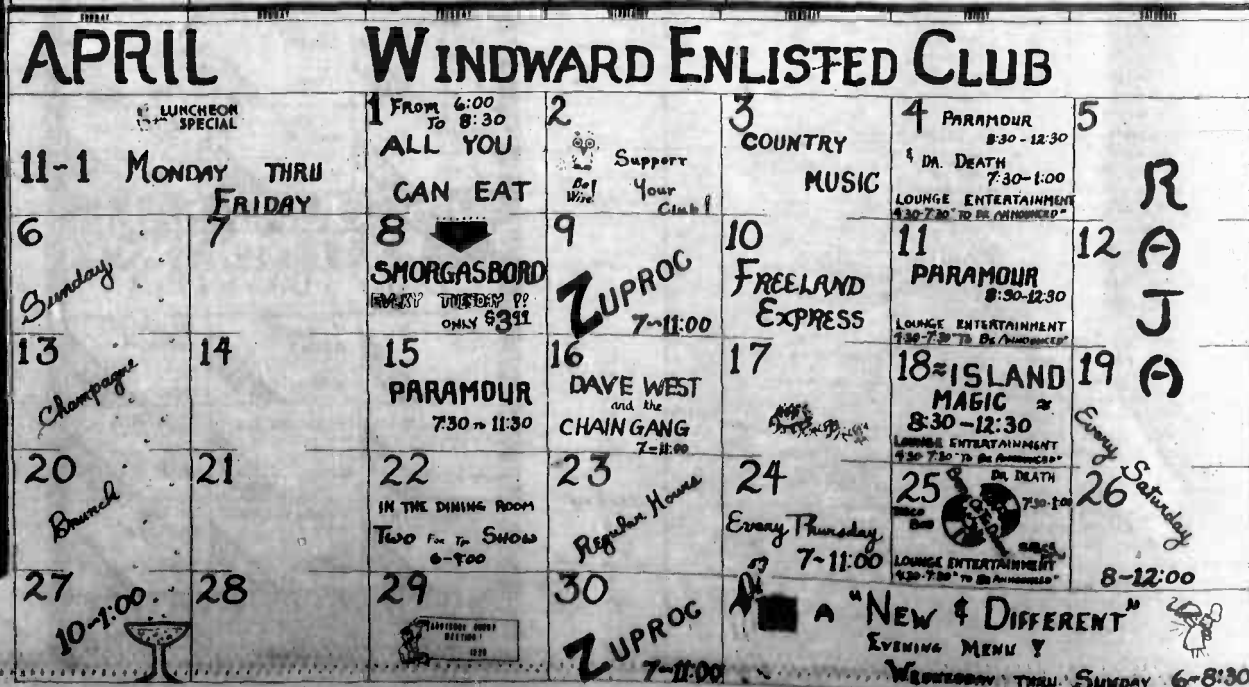 SUNDAY MONDAY TUESDAY WEDNESDAY THURSDAY FRIDAY SATURDAY
APRIL WINDWARD ENLISTED CLUB
LUNCHEON
SPECIAL
11-1 MONDAY THRU
FRIDAY
1 FROM 6:00
TO 8:30
ALL YOU
CAN EAT
2
Support
Your
Club!
Be
Wise!
3
COUNTRY
MUSIC
4 PARAMOUR
8:30-12:30
& DR. DEATH
7:30-1:00
LOUNGE ENTERTAINMENT
4:30-7:30 "TO BE ANNOUNCED"
5
R
A
J
A
6
Sunday
7
8
SMORGASBORD
EVERY TUESDAY !!
ONLY $3.99
9
ZUPROC
7-11:00
10
FREELAND
EXPRESS
11
PARAMOUR
8:30-12:30
LOUNGE ENTERTAINMENT
4:30-7:30 "TO BE ANNOUNCED"
12
13
Champagne
14
15
PARAMOUR
7:30 TO 11:30
16
DAVE WEST
and the
CHAIN GANG
7-11:00
17
18 ≈ ISLAND
MAGIC ≈
8:30-12:30
LOUNGE ENTERTAINMENT
4:30-7:30 "TO BE ANNOUNCED"
19
Every Saturday
20
Brunch
21
22
IN THE DINING ROOM
TWO FOR SHOW
6-9:00
23
Regular Hours
24
Every Thursday
7-11:00
25
DR. DEATH
7:30-1:00
LOUNGE ENTERTAINMENT
4:30-7:30 "TO BE ANNOUNCED"
26
8-12:00
27
10-1:00
28
29
30
ZUPROC
7-11:00
A "NEW & DIFFERENT"
EVENING MENU !
WEDNESDAY THRU SUNDAY 6-8:30